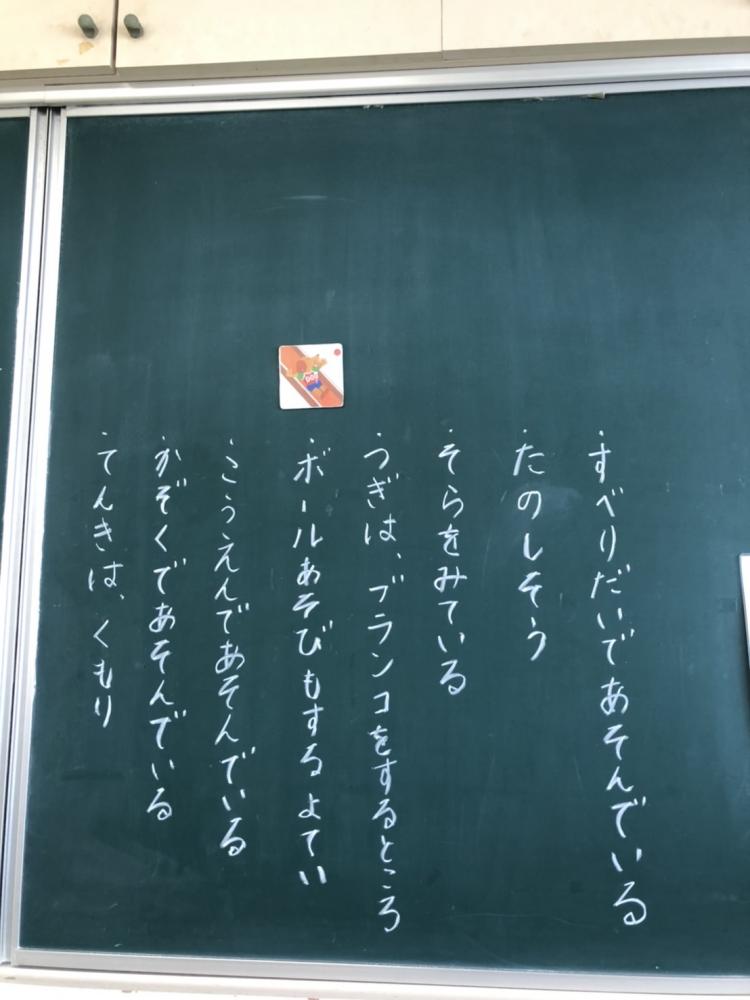 ・すべりだいであそんでいる
・たのしそう
・そらをみている
・つぎは、ブランコをするところ
・ボールあそびもするよてい
・こうえんであそんでいる
・かぞくであそんでいる
・てんきは、くもり